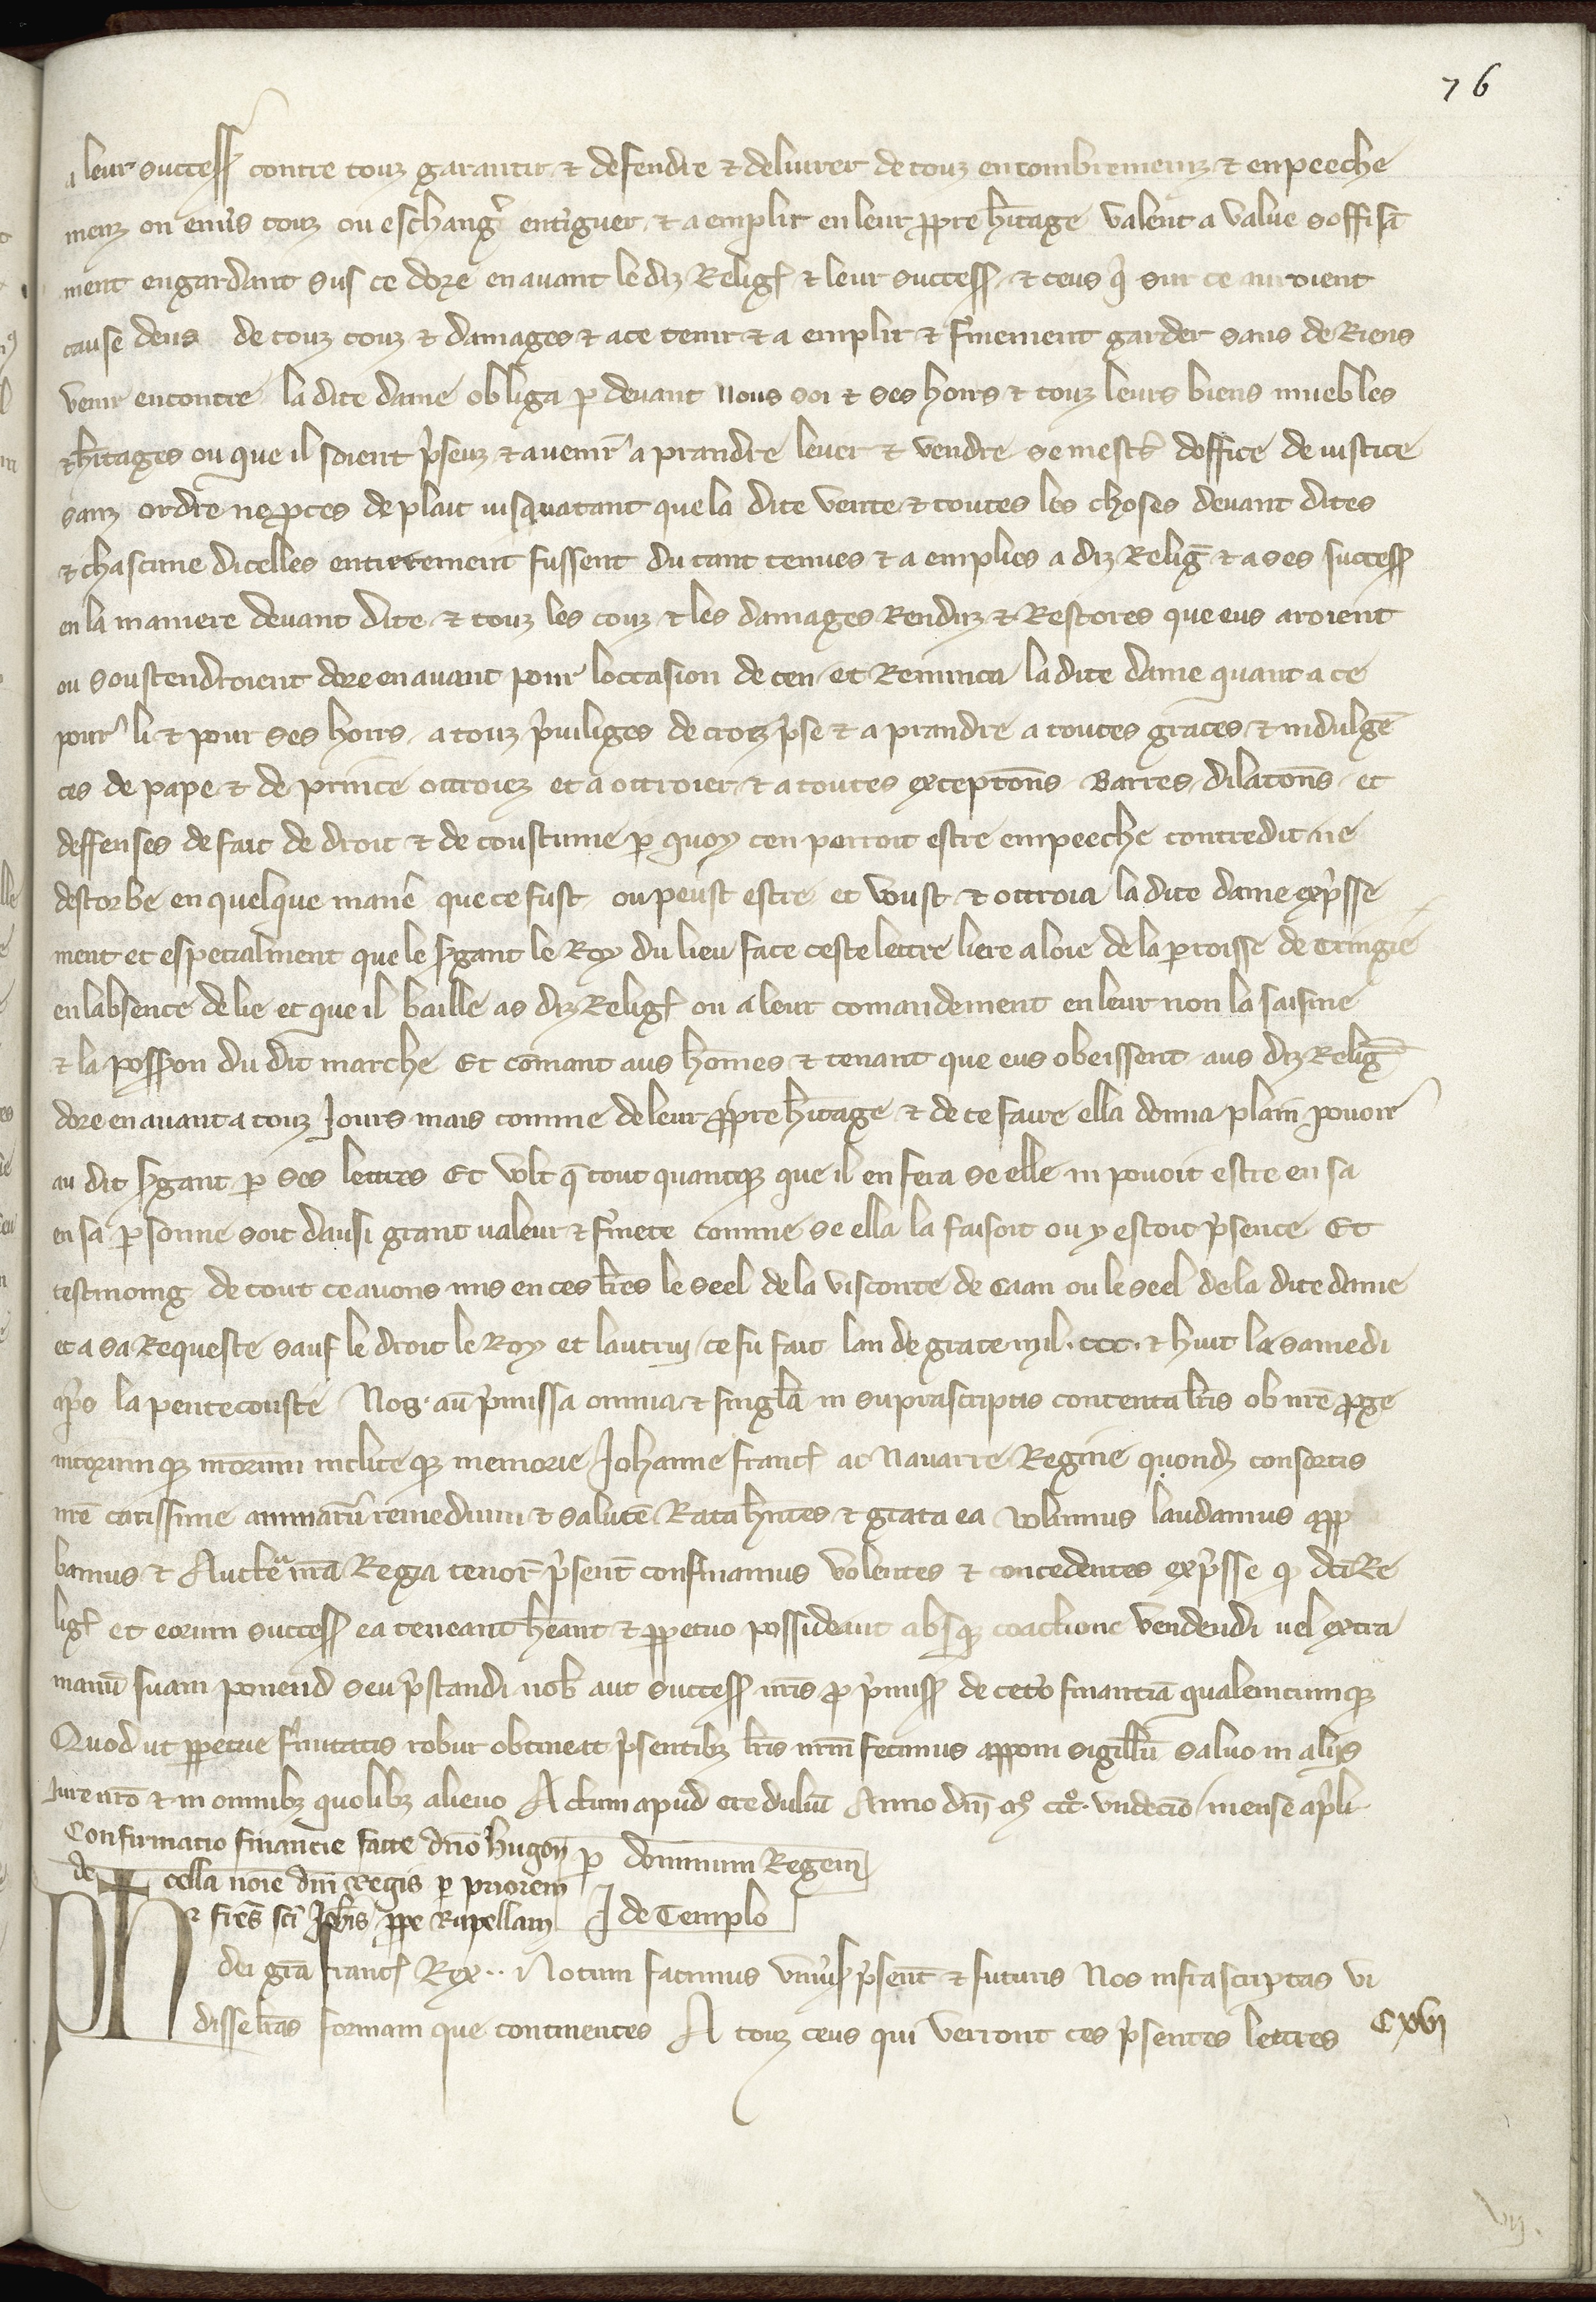 76
a leur success contre touz garantir et defendre et delivrer de touz encombremenz et enpeeche
menz ou envers touz ou eschangr enteriguer et a emplir en leur ppre hitage valeut a value soffisā
ment en gardant sus ce dore en avant le diz Relig et leur success et ceus q sur ce auroient
cause deus de touz couz et damages et a ce tenir et a emplir et fmement garder sans de Riens
venir encontre la dite dame obliga p devant nous soi et ses hoirs et touz leurs biens muebles
et hitages ou que il soient psenz et avenir a prandre lever et vendre se mest doffice de justice
sanz ordre ne pces de plait jusquatant que la dite vente et toutes les choses devant dites
et chascune dicelles entirement fussent du tant tenues et a emplies a diz Relig et a ses success
en la maniere devant dite et touz les couz et les damages Renduz et Restores que eus aroient
ou soustendroient dore en avant pour loccasion de cen et Renunca la dite dame quant a ce
pour li et pour ses hoirs a touz pviliges de croiz pse et a prandre a toutes graces et indulgē
ces de pape et de prince ottroiez et a ottroier et a toutes exceptons Barres dilatons et
deffenses de fait de droit et de coustume p quoy cen porroit estre empeeche contredit ne
destorbe en quelque manē que ce fust ou peust estre et voust et ottroia la dite dame expsse
ment et especialment que le sgant le Roy du lieu face ceste lettre liere a loie de la paroisse de Tringie
en labsence de lie et que il baille as diz Relig ou a leur comandement en leur non la saisine
et la possion du dit marche Et comant aus homes et tenant que eus obeissent aus diz Relig
dore en avant a touz Jours mais comme de leur ppre hitage et de ce faire ella donna plain povoir
au dit sgant p ses lettres Et volt q tout quantq que il en fera se elle ni povoit estre en sa
en sa psonne soit dausi grant valeur et fmete comme se ella la faisoit ou y estoit psente Et
tesmoing de tout ce avons mis en ces ltres le seel de la visconte de Caan ou le seel de la dite dame
et a sa Requeste sauf le droit le Roy et lautruy ce fu fait lan de grace mil ccc et huit le samedi
aps la pentecouste Nos aū pmissa omnia et singla in suprascriptis contenta ltis ob nrē pge
nitorumq nrorum inclite q memorie Johanne franc ac Navarre Regine quond consortis
nrē carissime animarū remedium et salutē Rata hntes et grata ea volumus laudamus app
bamus et Auctē nrā Regia tenor psent confmamus volentes et concedentes expsse q dcī Re
lig et eorum success ea teneant heant et ppetuo possideant absq coactione vendendi vel extra
manū suam ponend seu pstandi nob aut success nris p pmiss de cetō financiā qualemcumq
Quod ut ppetue fmitatis robur obtineat psentibz ltis nrm fecimus apponi sigillū salvo in aliis
Jure nrō et in omnibz quolibz alieno Actum apud credulium Anno dni mº cccº undecīo mense aplī
Confirmatio financie facte dnō hugon p dominum Regem
de cella noīe dnī Regis p priorem
et fres sci Johīs ppe Rupellam J de Templo
Ph dei grā franc Rex Notum facimus univs psent et futuris Nos infrascriptas vi
disse ltras formam que continentes A touz ceus qui verront ces psentes lettres
Cxvi
vij